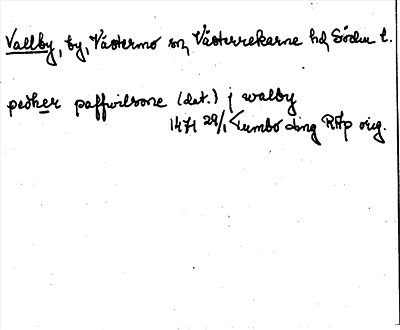 Vallby, by, Västermo sn, Västerrekarne hd, Söderm l.
pedher paffwilsone (dat.) j walby
1471 29/1 Tumbo ding RAp orig.